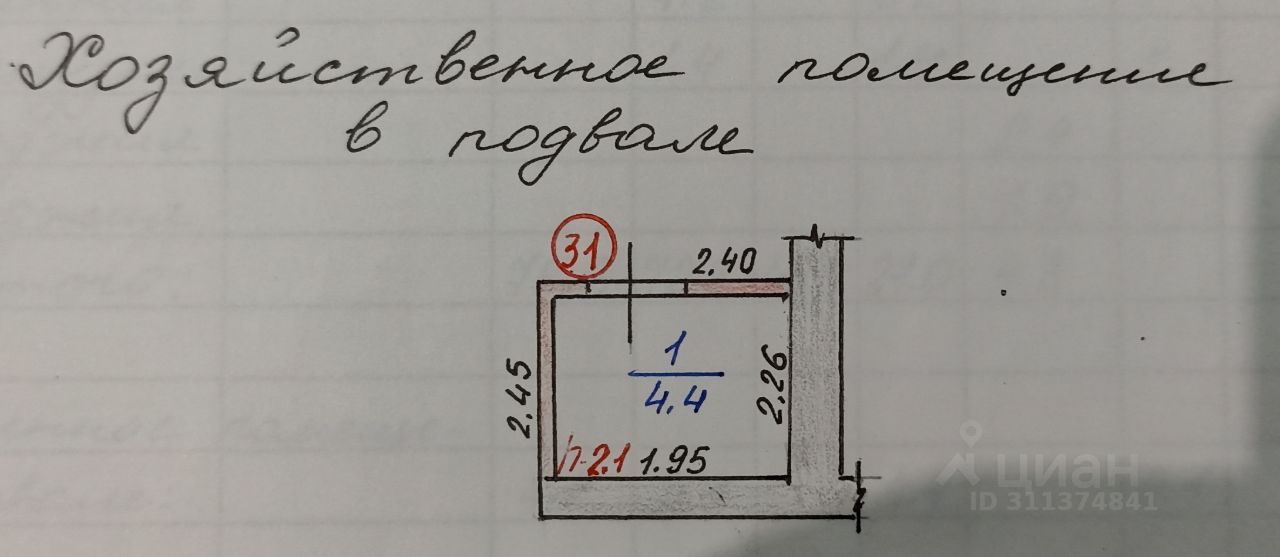 Хозяйственное помещение
в подвале
31
2.40
1
4.4
2.45
2.26
h-2.1 1.95
циан
ID 311374841